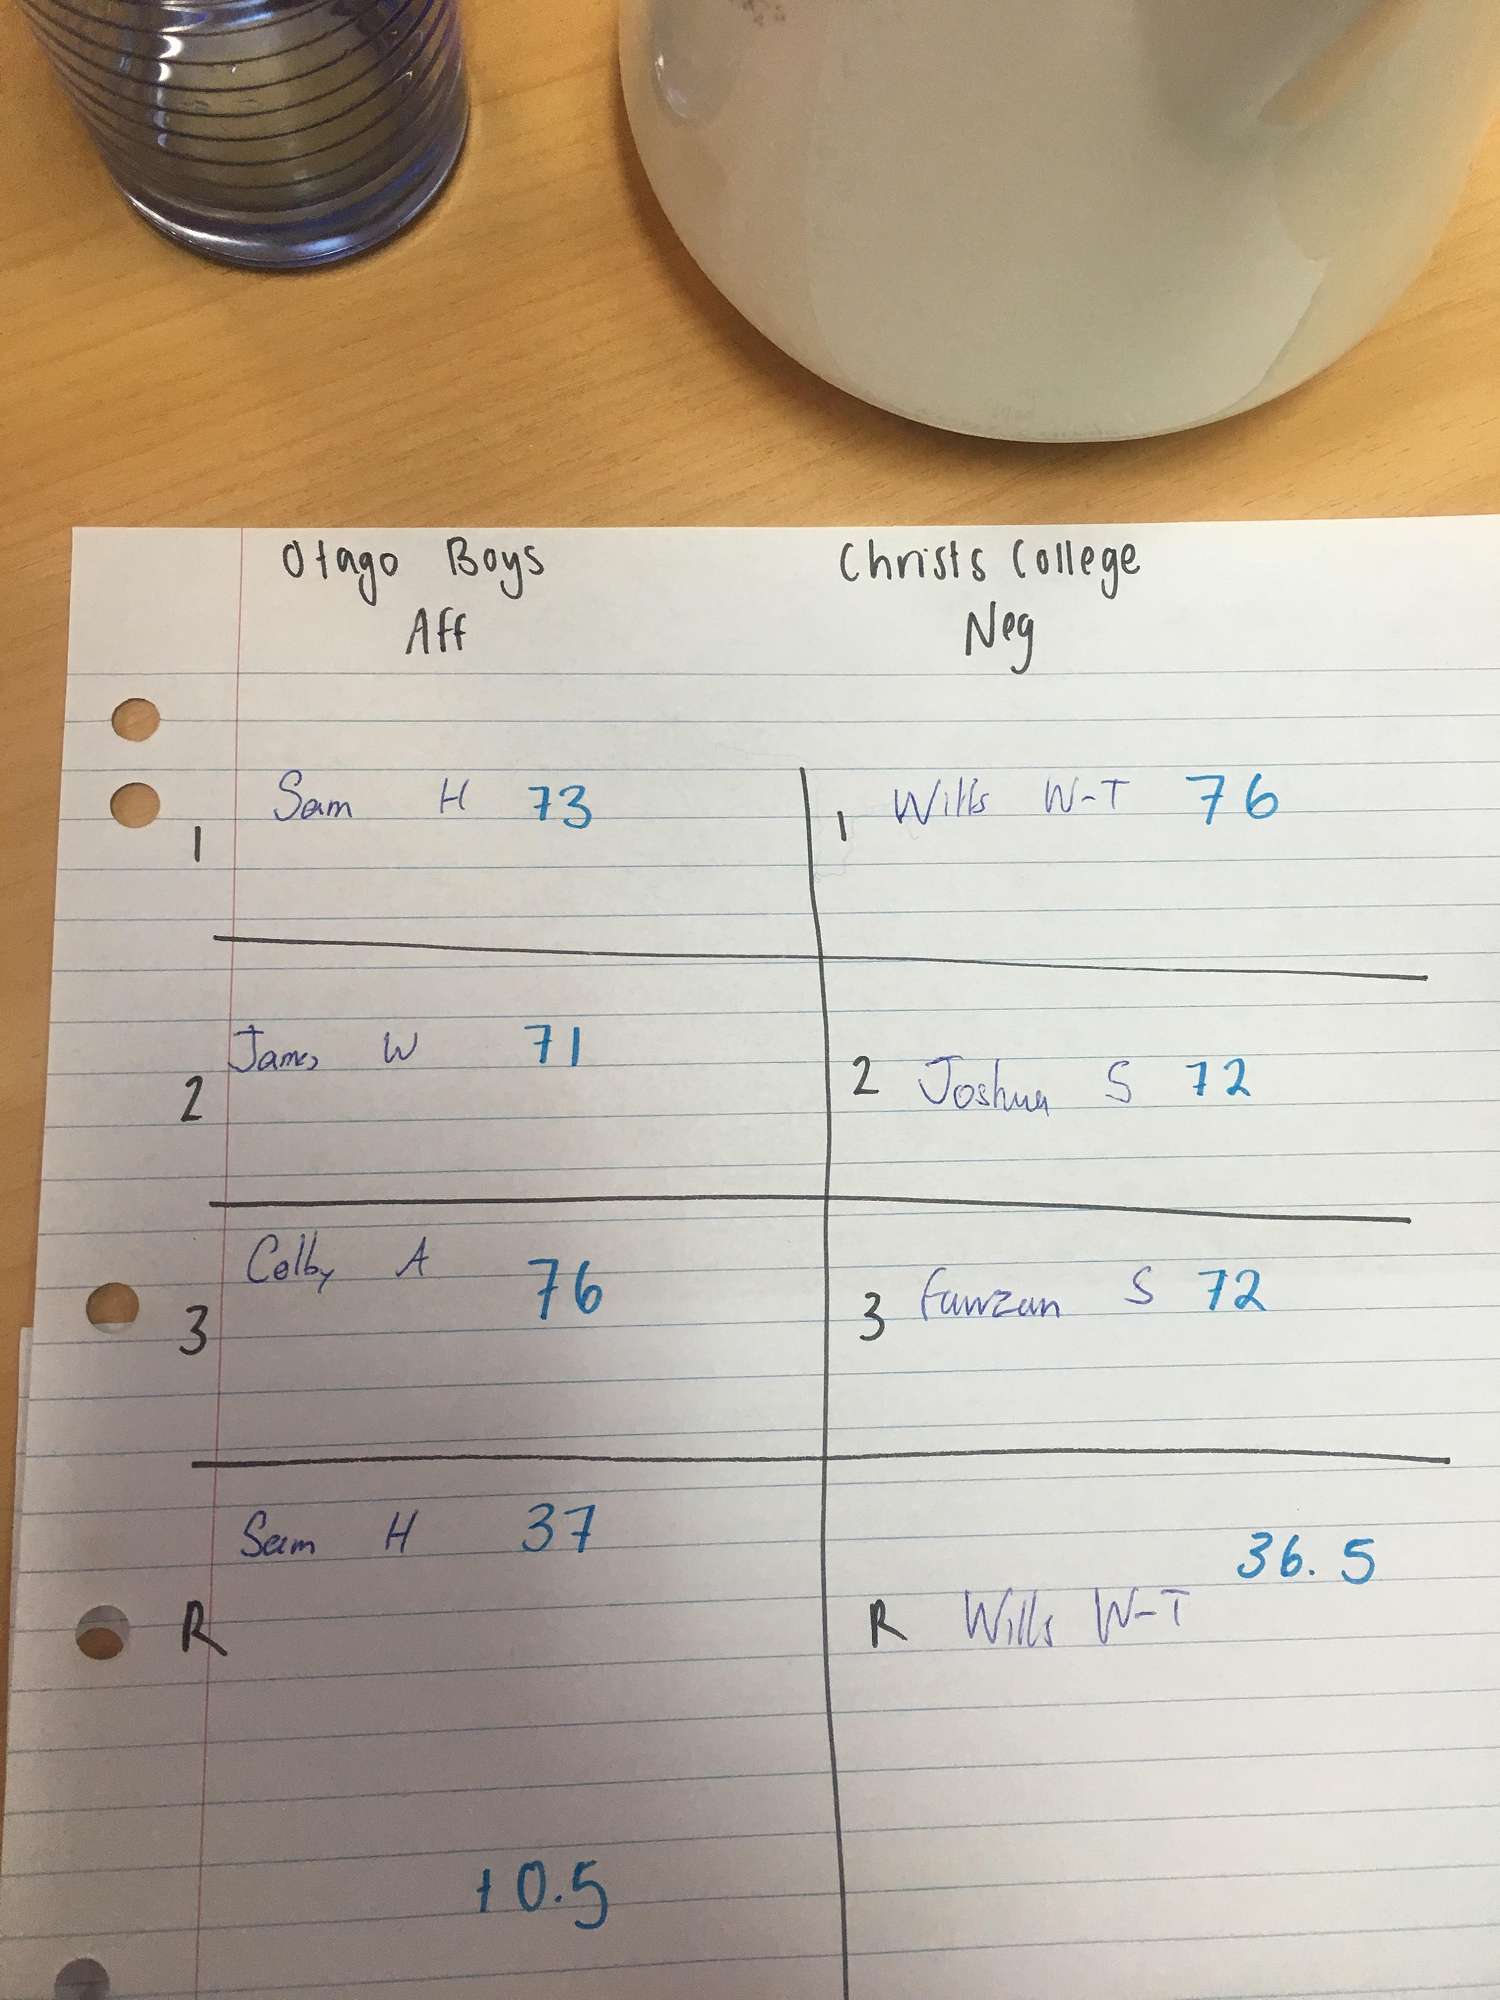 Otago Boys Christs College
Aff Neg
1 Sam H 73 1 Wills W-T 76
2 James W 71 2 Joshua S 72
3 Colby A 76 3 Fawzan S 72
R Sam H 37 R Wills W-T 36.5
+0.5